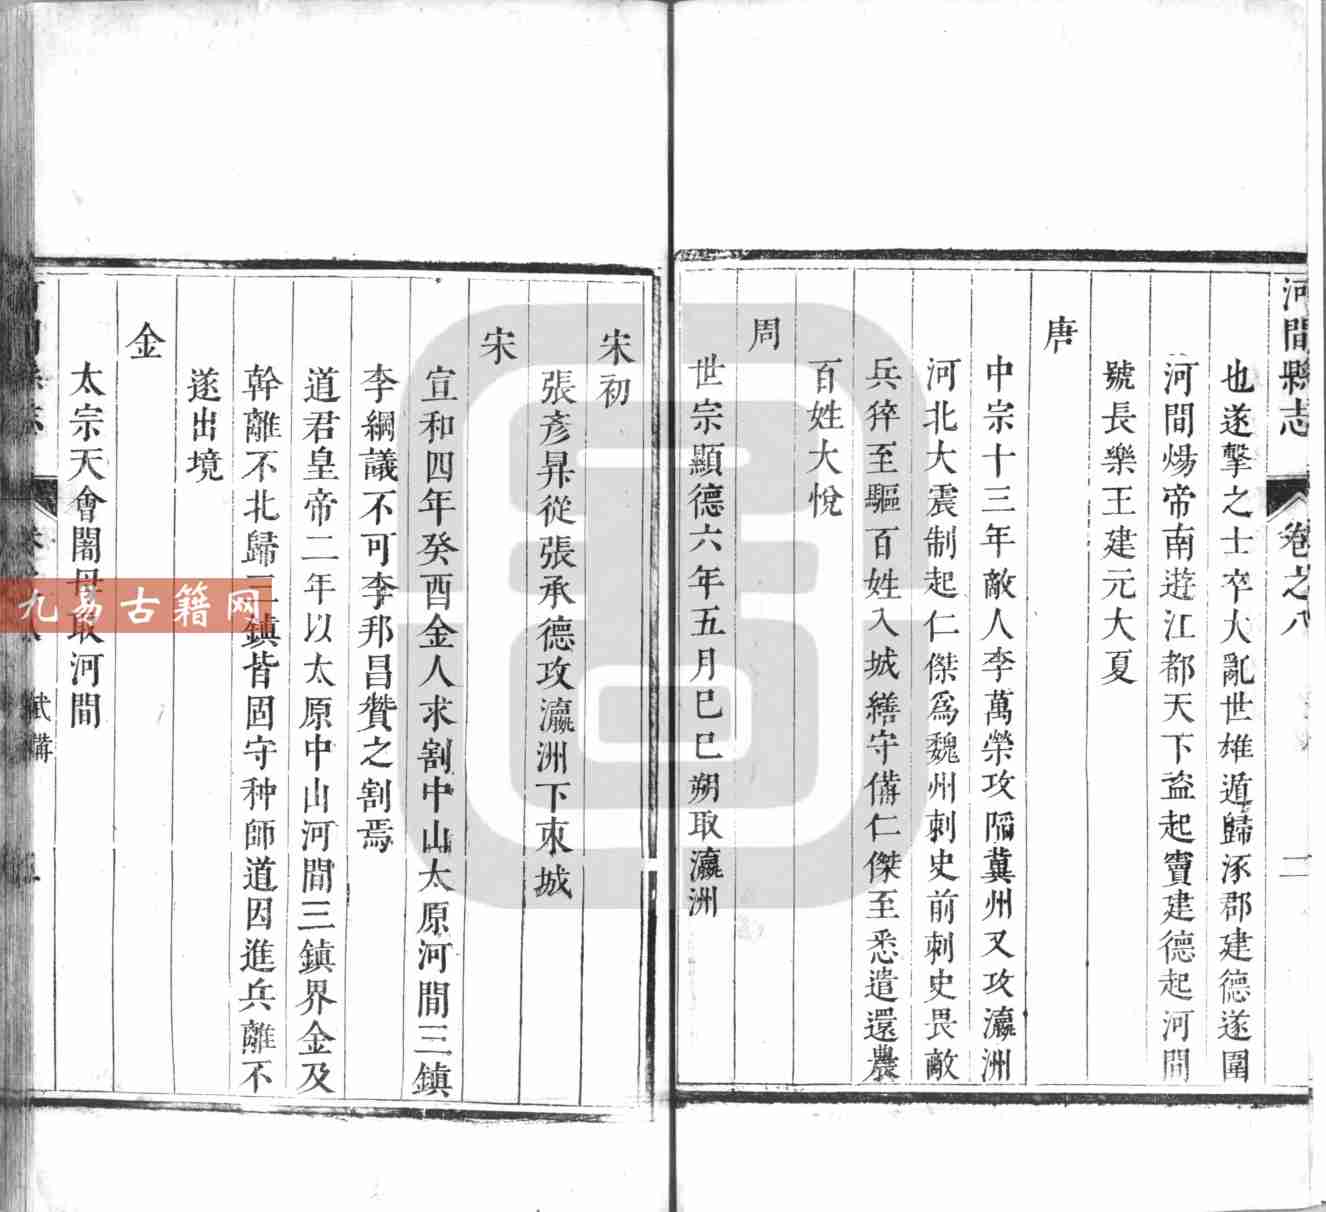 河間縣志 卷之八 二
也遂擊之士卒大亂世雄遁歸涿郡建德遂圍
河間煬帝南遊江都天下盜起竇建德起河間
號長樂王建元大夏
唐
中宗十三年敵人李萬榮攻陷冀州又攻瀛洲
河北大震制起仁傑爲魏州刺史前刺史畏敵
兵猝至驅百姓入城繕守備仁傑至悉遣還農
百姓大悅
周
世宗顯德六年五月巳巳朔取瀛洲
宋初
張彥昇從張承德攻瀛洲下東城
宋
宣和四年癸酉金人求割中山太原河間三鎮
李綱議不可李邦昌贊之割焉
道君皇帝二年以太原中山河間三鎮界金及
幹離不北歸三鎮皆固守种師道因進兵離不
遂出境
金
太宗天會闍母取河間
武備
九易古籍网